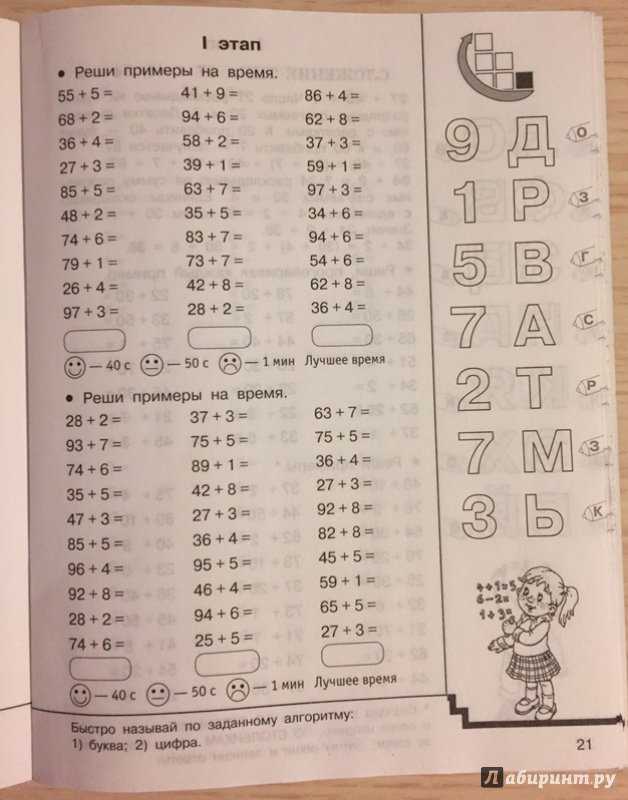 I этап
• Реши примеры на время.
55 + 5 = 41 + 9 = 86 + 4 =
68 + 2 = 94 + 6 = 62 + 8 =
36 + 4 = 58 + 2 = 37 + 3 =
27 + 3 = 39 + 1 = 59 + 1 =
85 + 5 = 63 + 7 = 97 + 3 =
48 + 2 = 35 + 5 = 34 + 6 =
74 + 6 = 83 + 7 = 94 + 6 =
79 + 1 = 73 + 7 = 54 + 6 =
26 + 4 = 42 + 8 = 62 + 8 =
97 + 3 = 28 + 2 = 36 + 4 =
— 40 с — 50 с — 1 мин Лучшее время
• Реши примеры на время.
28 + 2 = 37 + 3 = 63 + 7 =
93 + 7 = 75 + 5 = 75 + 5 =
74 + 6 = 89 + 1 = 36 + 4 =
35 + 5 = 42 + 8 = 27 + 3 =
47 + 3 = 27 + 3 = 92 + 8 =
85 + 5 = 36 + 4 = 82 + 8 =
96 + 4 = 95 + 5 = 45 + 5 =
92 + 8 = 46 + 4 = 59 + 1 =
28 + 2 = 94 + 6 = 65 + 5 =
74 + 6 = 25 + 5 = 27 + 3 =
— 40 с — 50 с — 1 мин Лучшее время
9 Д О
1 Р З
5 В Г
7 А С
2 Т Р
7 М З
3 Ь К
4+1=5
6−2=
1+3=
Быстро называй по заданному алгоритму:
1) буква; 2) цифра.
21
Лабиринт.ру